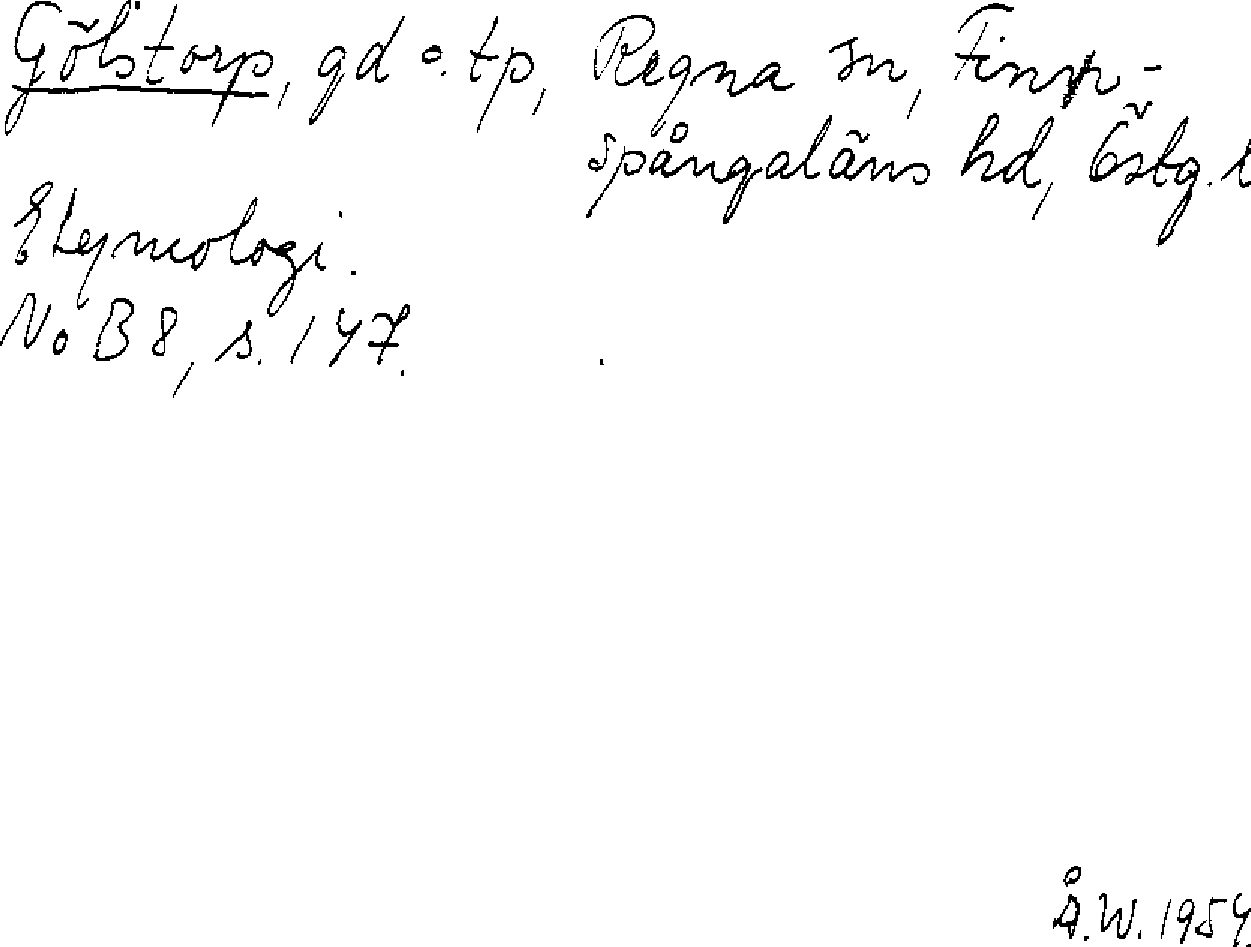 Gölstorp, gd o. tp, Regna sn, Finsp-
spångaläns hd, Östg. l
Etymologi.
NoB 8, s. 147.
Å.W. 1954